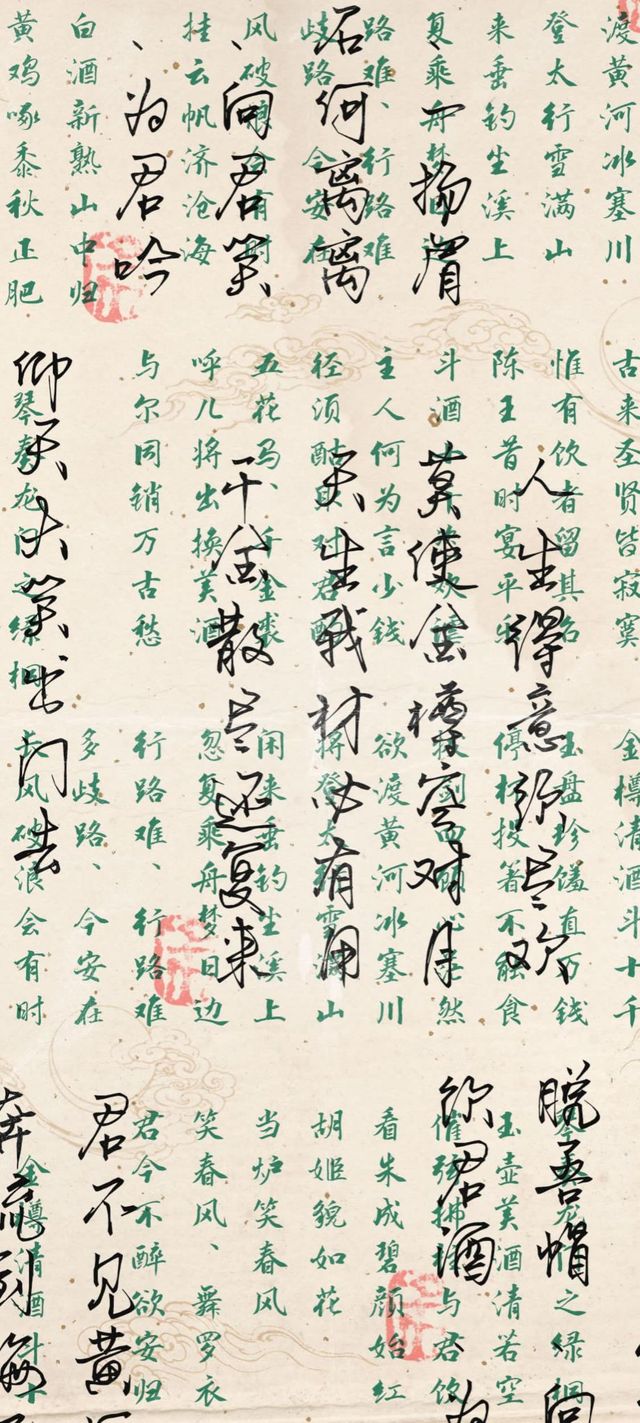 渡黄河冰塞川
登太行雪满山
来垂钓坐溪上
复乘舟梦日边
路难、行路难
歧路、今安在
风破浪会有时
挂云帆济沧海
白酒新熟山中归
黄鸡啄黍秋正肥
一扬眉
石何离离
、向君笑
、为君吟
古来圣贤皆寂寞
惟有饮者留其名
陈王昔时宴平乐
斗酒十千恣欢谑
主人何为言少钱
径须酤取对君酌
五花马、千金裘
呼儿将出换美酒
与尔同销万古愁
琴奏龙门之绿桐
人生得意须尽欢
莫使金樽空对月
天生我材必有用
千金散尽还复来
仰天大笑出门去
金樽清酒斗十千
玉盘珍馐直万钱
停杯投箸不能食
拔剑四顾心茫然
欲渡黄河冰塞川
将登太行雪满山
闲来垂钓坐溪上
忽复乘舟梦日边
行路难、行路难
多歧路、今安在
长风破浪会有时
琴奏龙门之绿桐
玉壶美酒清若空
催弦拂柱与君饮
看朱成碧颜始红
胡姬貌如花
当炉笑春风
笑春风、舞罗衣
君今不醉欲安归
金樽清酒斗十
脱吾帽
向
饮君酒
为
君不见黄
奔流到海